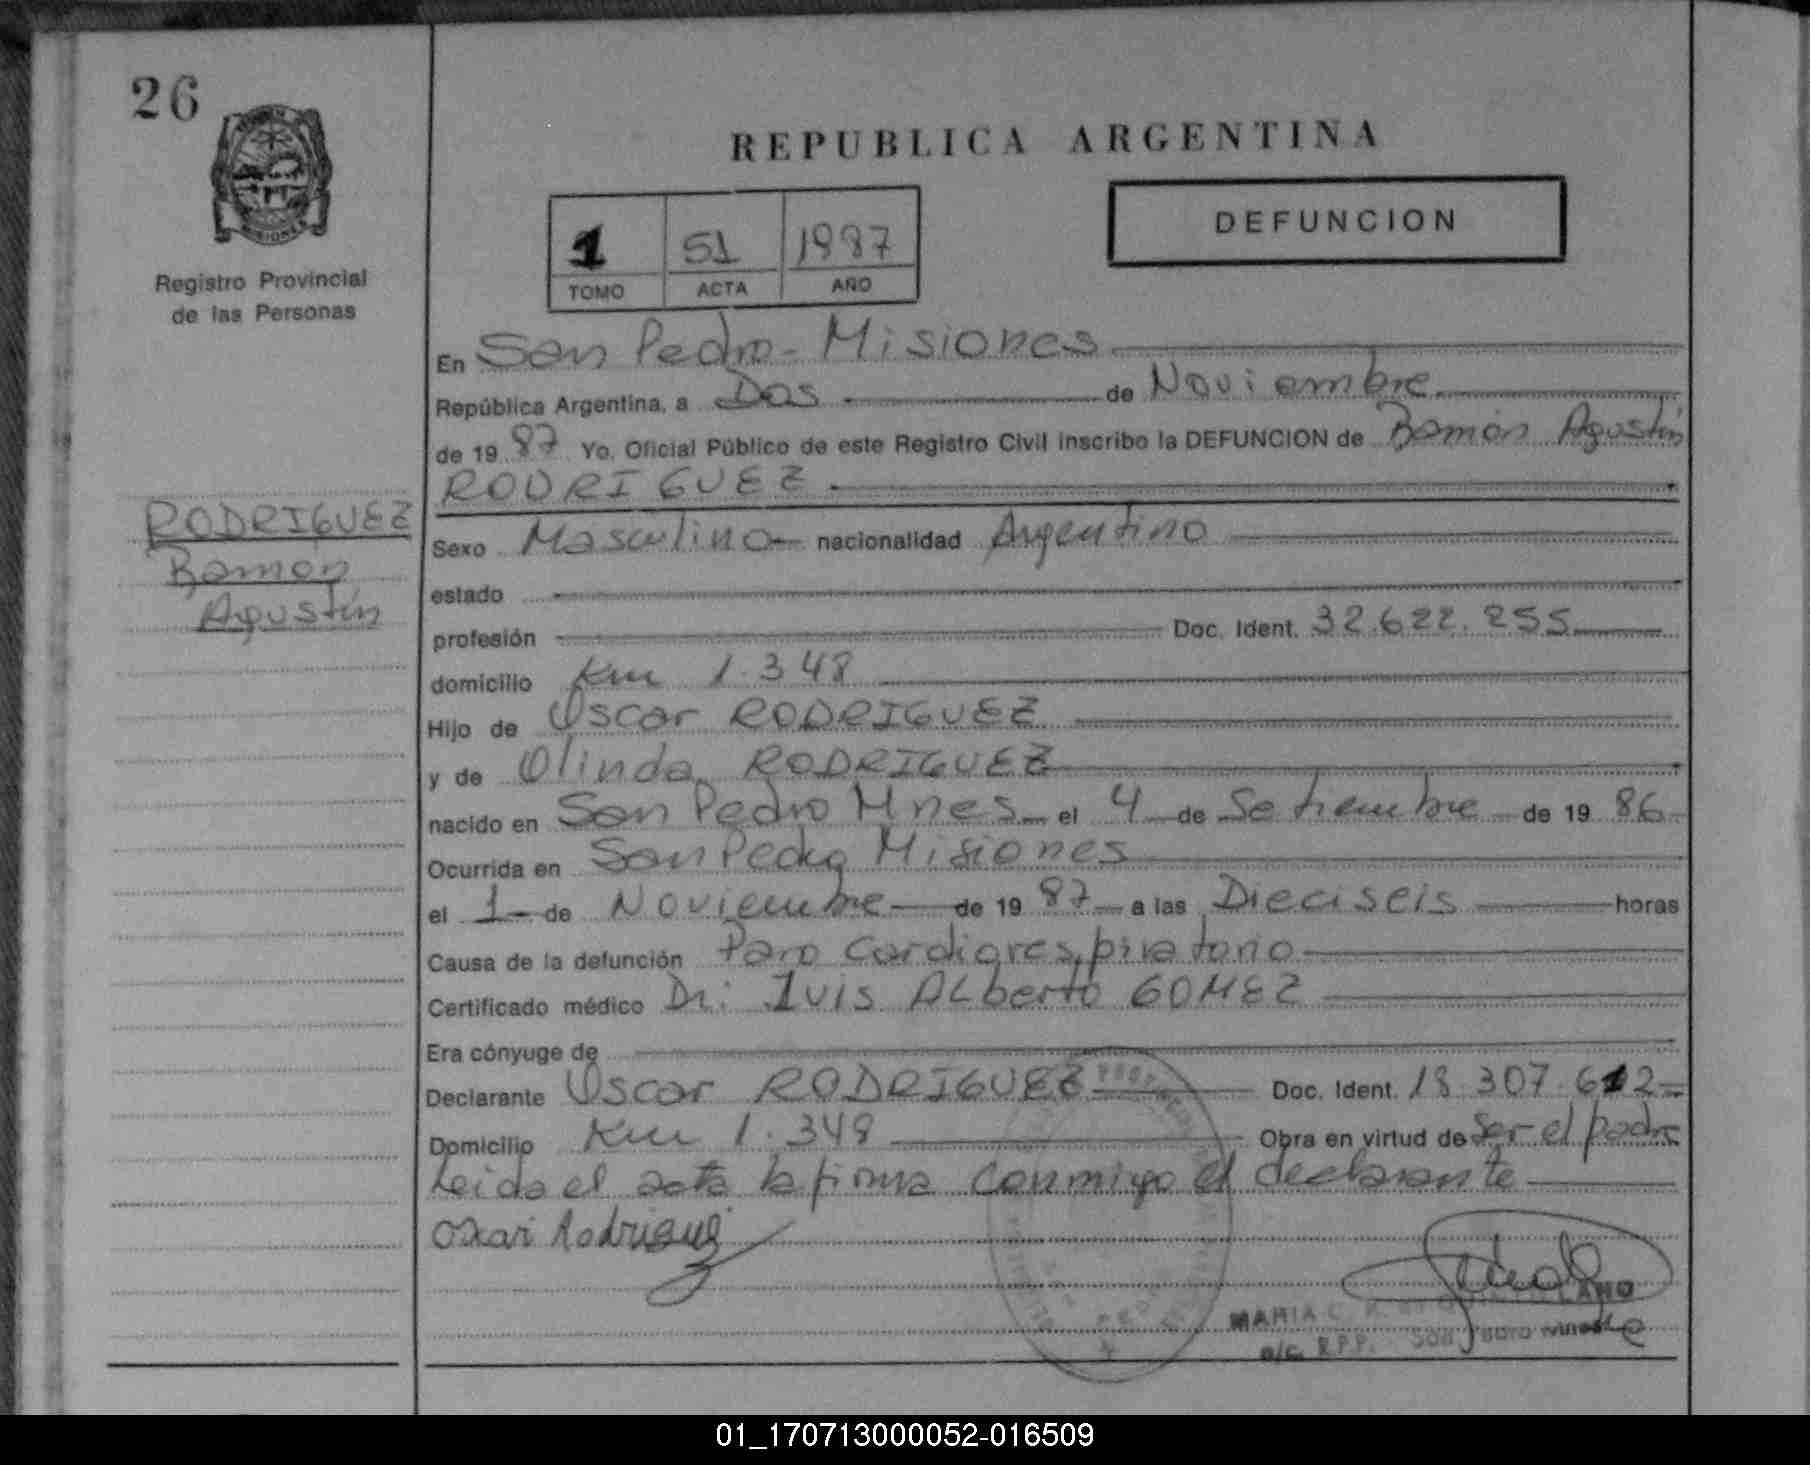 26
REPUBLICA ARGENTINA
MISIONES
Registro Provincial
de las Personas
1 51 1987
TOMO ACTA AÑO
DEFUNCION
En San Pedro - Misiones
República Argentina, a Dos de Noviembre
de 19 87 Yo, Oficial Público de este Registro Civil inscribo la DEFUNCION de Ramón Agustín
RODRIGUEZ
RODRIGUEZ
Ramón
Agustín
Sexo Masculino nacionalidad Argentino
estado
profesión Doc. Ident. 32.622.255
domicilio Km 1.348
Hijo de Oscar RODRIGUEZ
y de Olinda RODRIGUEZ
nacido en San Pedro Mnes el 4 de Setiembre de 19 86
Ocurrida en San Pedro Misiones
el 1 de Noviembre de 19 87 a las Dieciseis horas
Causa de la defunción Paro Cardiorespiratorio
Certificado médico Dr. Luis Alberto GOMEZ
Era cónyuge de
Declarante Oscar RODRIGUEZ Doc. Ident. 18.307.612
Domicilio Km 1.348 Obra en virtud de Ser el padre
Leida el acta la firma conmigo el declarante
Oscar Rodriguez
MARIA C.
a/c. R.P.P. San Pedro
01_170713000052-016509